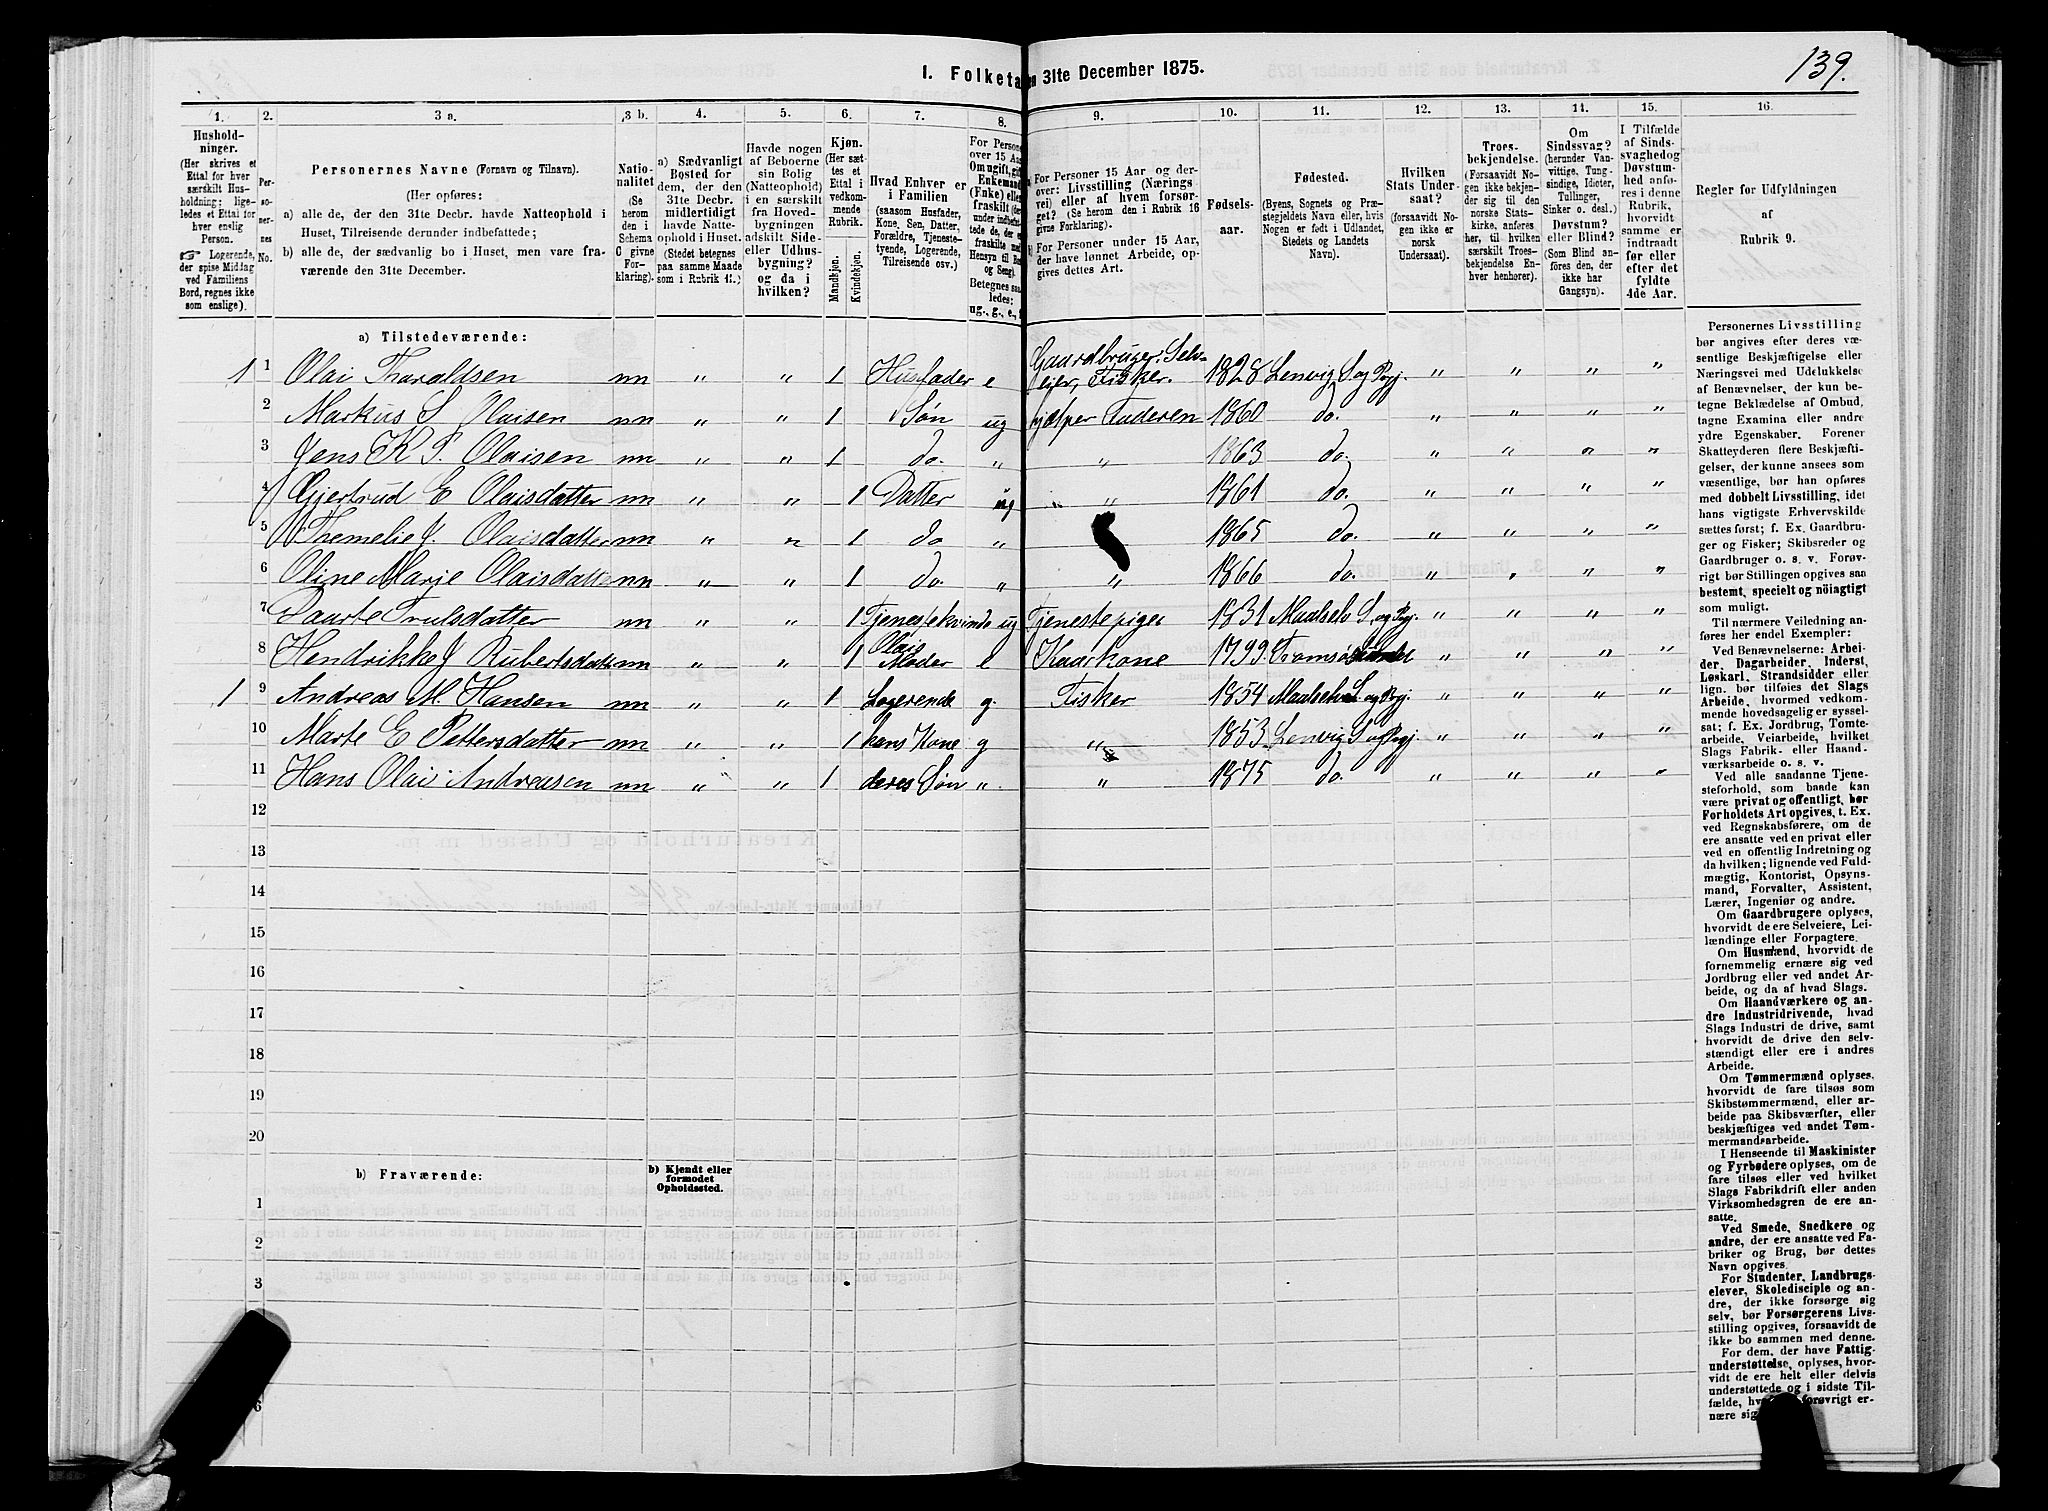 139.
I. Folketa en 31te December 1875.
1. 2. 3 a. 3 b. 4. 5. 6. 7. 8. 9. 10. 11. 12. 13. 14. 15. 16.
Hushold-
ninger.
(Her skrives et
Ettal for hver
særskilt Hus-
holdning; lige-
ledes et Ettal for
hver enslig
Person.
☞ Logerende,
der spise Middag
ved Familiens
Bord, regnes ikke
som enslige).
Per-
so-
ner-
nes
No.
Personernes Navne (Fornavn og Tilnavn).
(Her opføres:
a) alle de, der den 31te Decbr. havde Natteophold i
Huset, Tilreisende derunder indbefattede;
b) alle de, der sædvanlig bo i Huset, men vare fra-
værende den 31te December.
Natio-
nalitet
(Se
herom
den i
Schema
O givne
For-
klaring).
a) Sædvanligt
Bosted for
dem, der den
31te Decbr.
midlertidigt
havde Natte-
ophold i Huset.
(Stedet betegnes
paa samme Maade
som i Rubrik 11.)
Havde nogen
af Beboerne
sin Bolig
(Natteophold)
i en særskilt
fra Hoved-
bygningen
adskilt Side-
eller Udhus-
bygning?
og da i
hvilken?
Kjøn.
(Her sæt-
tes et
Ettal i
vedkom-
mende
Rubrik.
Mandkjøn.
Kvindekjøn.
Hvad Enhver er
i Familien
(saasom Husfader,
Kone, Søn, Datter,
Forældre, Tjeneste-
tyende, Logerende,
Tilreisende osv.)
For Persone
over 15 Aar
Om ugift, gift
Enkemand
(Enke) eller
fraskilt (der-
under indbefat-
tede de, der ere
fraskilte med
Hensyn til Bord
og Seng).
Betegnes saa-
ledes:
ug., g., e., f.
For Personer 15 Aar og der-
over: Livsstilling (Nærings-
vei) eller af hvem forsør-
get? (Se herom den i Rubrik 16
givne Forklaring).
For Personer under 15 Aar,
der have lønnet Arbeide, op-
gives dettes Art.
Fødsels-
aar.
Fødested.
(Byens, Sognets og Præ-
stegjeldets Navn eller, hvis
Nogen er født i Udlandet,
Stedets og Landets
Navn).
Hvilken
Stats Under-
saat?
(forsaavidt No-
gen ikke er
norsk
Undersaat).
Troes-
bekjendelse.
(Forsaavidt No-
gen ikke bekjen-
der sig til den
norske Stats-
kirke, anføres
her, til hvilken
særskilt Troes-
bekjendelse En-
hver henhører).
Om
Sindssvag?
(herunder Van-
vittige, Tung-
sindige, Idioter,
Tullinger,
Sinker o. desl.)
Døvstum?
eller Blind?
(Som Blind an-
føres den, der
ikke har
Gangsyn).
I Tilfælde
af Sinds-
svaghed og
Døvstum-
hed anfø-
res i denne
Rubrik,
hvorvidt
samme er
indtraadt
før eller
efter det
fyldte
4de Aar.
Regler før Udfyldningen
af
Rubrik 9.
a) Tilstedeværende:
1 1 Olai Tharaldsen nn „ „ 1 Husfader e Gaardbruger: Selv-
eier, Fisker. 1828 Lenvig S og Prgj. „ „ „ „
2 Markus S Olaisen nn „ „ 1 Søn ug hjelper Faderen 1860 do. „ „ „ „
3 Jens K P. Olaisen nn „ „ 1 do. „ „ 1863 do. „ „ „ „
4 Gjertrud E Olaisdatter nn „ „ 1 Datter ug „ „ 1861 do. „ „ „ „
5 Themelie J. Olaisdatter nn „ „ 1 do „ 1865 do. „ „ „ „
6 Oline Marie Olaisdatte nn „ „ 1 do. „ „ 1866 do. „ „ „ „
7 Trulsdatter nn „ „ 1 Tjenestekvinde ug Tjenestepige 1831 Maalselv S og Prgj. „ „ „ „
8 Hendrikke J Rubertsdatt nn „ „ 1 Olais
Moder e Kaarkone 1799 „ „ „ „
1 9 Andreas M. Hansen nn „ „ 1 Logerende g. Fisker 1854 Maalselv S og Prgj. „ „ „ „
10 Marte E Pettersdatter nn „ „ 1 hans Kone g „ 1853 Lenvig S og Prgj. „ „ „ „
11 Hans Olai Andreasen nn „ „ 1 deres Søn „ „ 1875 do. „ „ „ „
12
13
14
15
16
17
18
19
20
b) Fraværende:
b) Kjendt eller
formodet
Opholdssted.
1
2
3
6
Personernes Livsstilling
bør angives efter deres væ-
sentlige Beskjæftigelse eller
Næringsvei med Udelukkelse
af Benævnelser, der kun be-
tegne Beklædelse af Ombud,
tagne Examina eller andre
ydre Egenskaber. Forener
Skatteyderen flere Beskjæfti-
gelser, der kunne ansees som
væsentlige, bør han opføres
med dobbelt Livsstilling, idet
hans vigtigste Erhvervskilde
sættes først; f. Ex. Gaardbru-
ger og Fisker; Skibsreder og
Gaardbruger o. s. v. Forøv-
rigt bør Stillingen opgives saa
bestemt, specielt og nöiagtigt
som muligt.
Til nærmere Veiledning an-
føres her endel Exempler:
Ved Benævnelserne: Arbei-
der, Dagarbeider, Inderst,
Løskarl, Strandsidder eller
lign. bør tilføies det Slags
Arbeide, hvormed vedkom-
mende hovedsagelig er syssel-
sat; f. Ex. Jordbrug, Tomte-
arbeide, Veiarbeide, hvilket
Slags Fabrik- eller Haand-
værksarbeide o. s. v.
Ved alle saadanne Tjene-
steforhold, som baade kan
være privat og offentligt, bør
Forholdets Art opgives, t. Ex.
ved Regnskabsførere, om de
ere ansatte ved en privat eller
ved en offentlig Indretning og
da hvilken; lignende ved Fuld-
mægtig, Kontorist, Opsyns-
mand, Forvalter, Assistent,
Lærer, Ingeniør og andre.
Om Gaardbrugere oplyses,
hvorvidt de ere Selveiere, Lei-
lændinge eller Forpagtere.
Om Husmænd, hvorvidt de
fornemmelig ernære sig ved
Jordbrug eller ved andet Ar-
beide, og da af hvad Slags.
Om Haandværkere og an-
dre Industridrivende, hvad
Slags Industri de drive, samt
hvorvidt de drive den selv-
stændigt eller ere i andres
Arbeide.
Om Tømmermænd oplyses,
hvorvidt de fare tilsøs som
Skibstømmermænd, eller ar-
beide paa Skibsværfter, eller
beskjæftiges ved andet Tøm-
mermandsarbeide.
I Henseende til Maskinister
og Fyrbødere oplyses, om de
fare tilsøs eller ved hvilket
Slags Fabrikdrift eller anden
Virksomhedsgren de ere an-
satte.
Ved Smede, Snedkere og
andre, der ere ansatte ved Fa-
briker og Brug, bør dettes
Navn opgives.
For Studenter, Landbrugs-
elever, Skoledisciple og an-
dre, der ikke forsørge sig
selv, bør Forsørgerens Livs-
stilling opgives, forsaavidt de
ikke bo sammen med denne.
For dem, der have Fattig-
understøttelse, oplyses, hvor-
vidt de ere helt eller delvis
understøttede og i sidste Til-
fælde, hv forøvrigt er-
nære sig